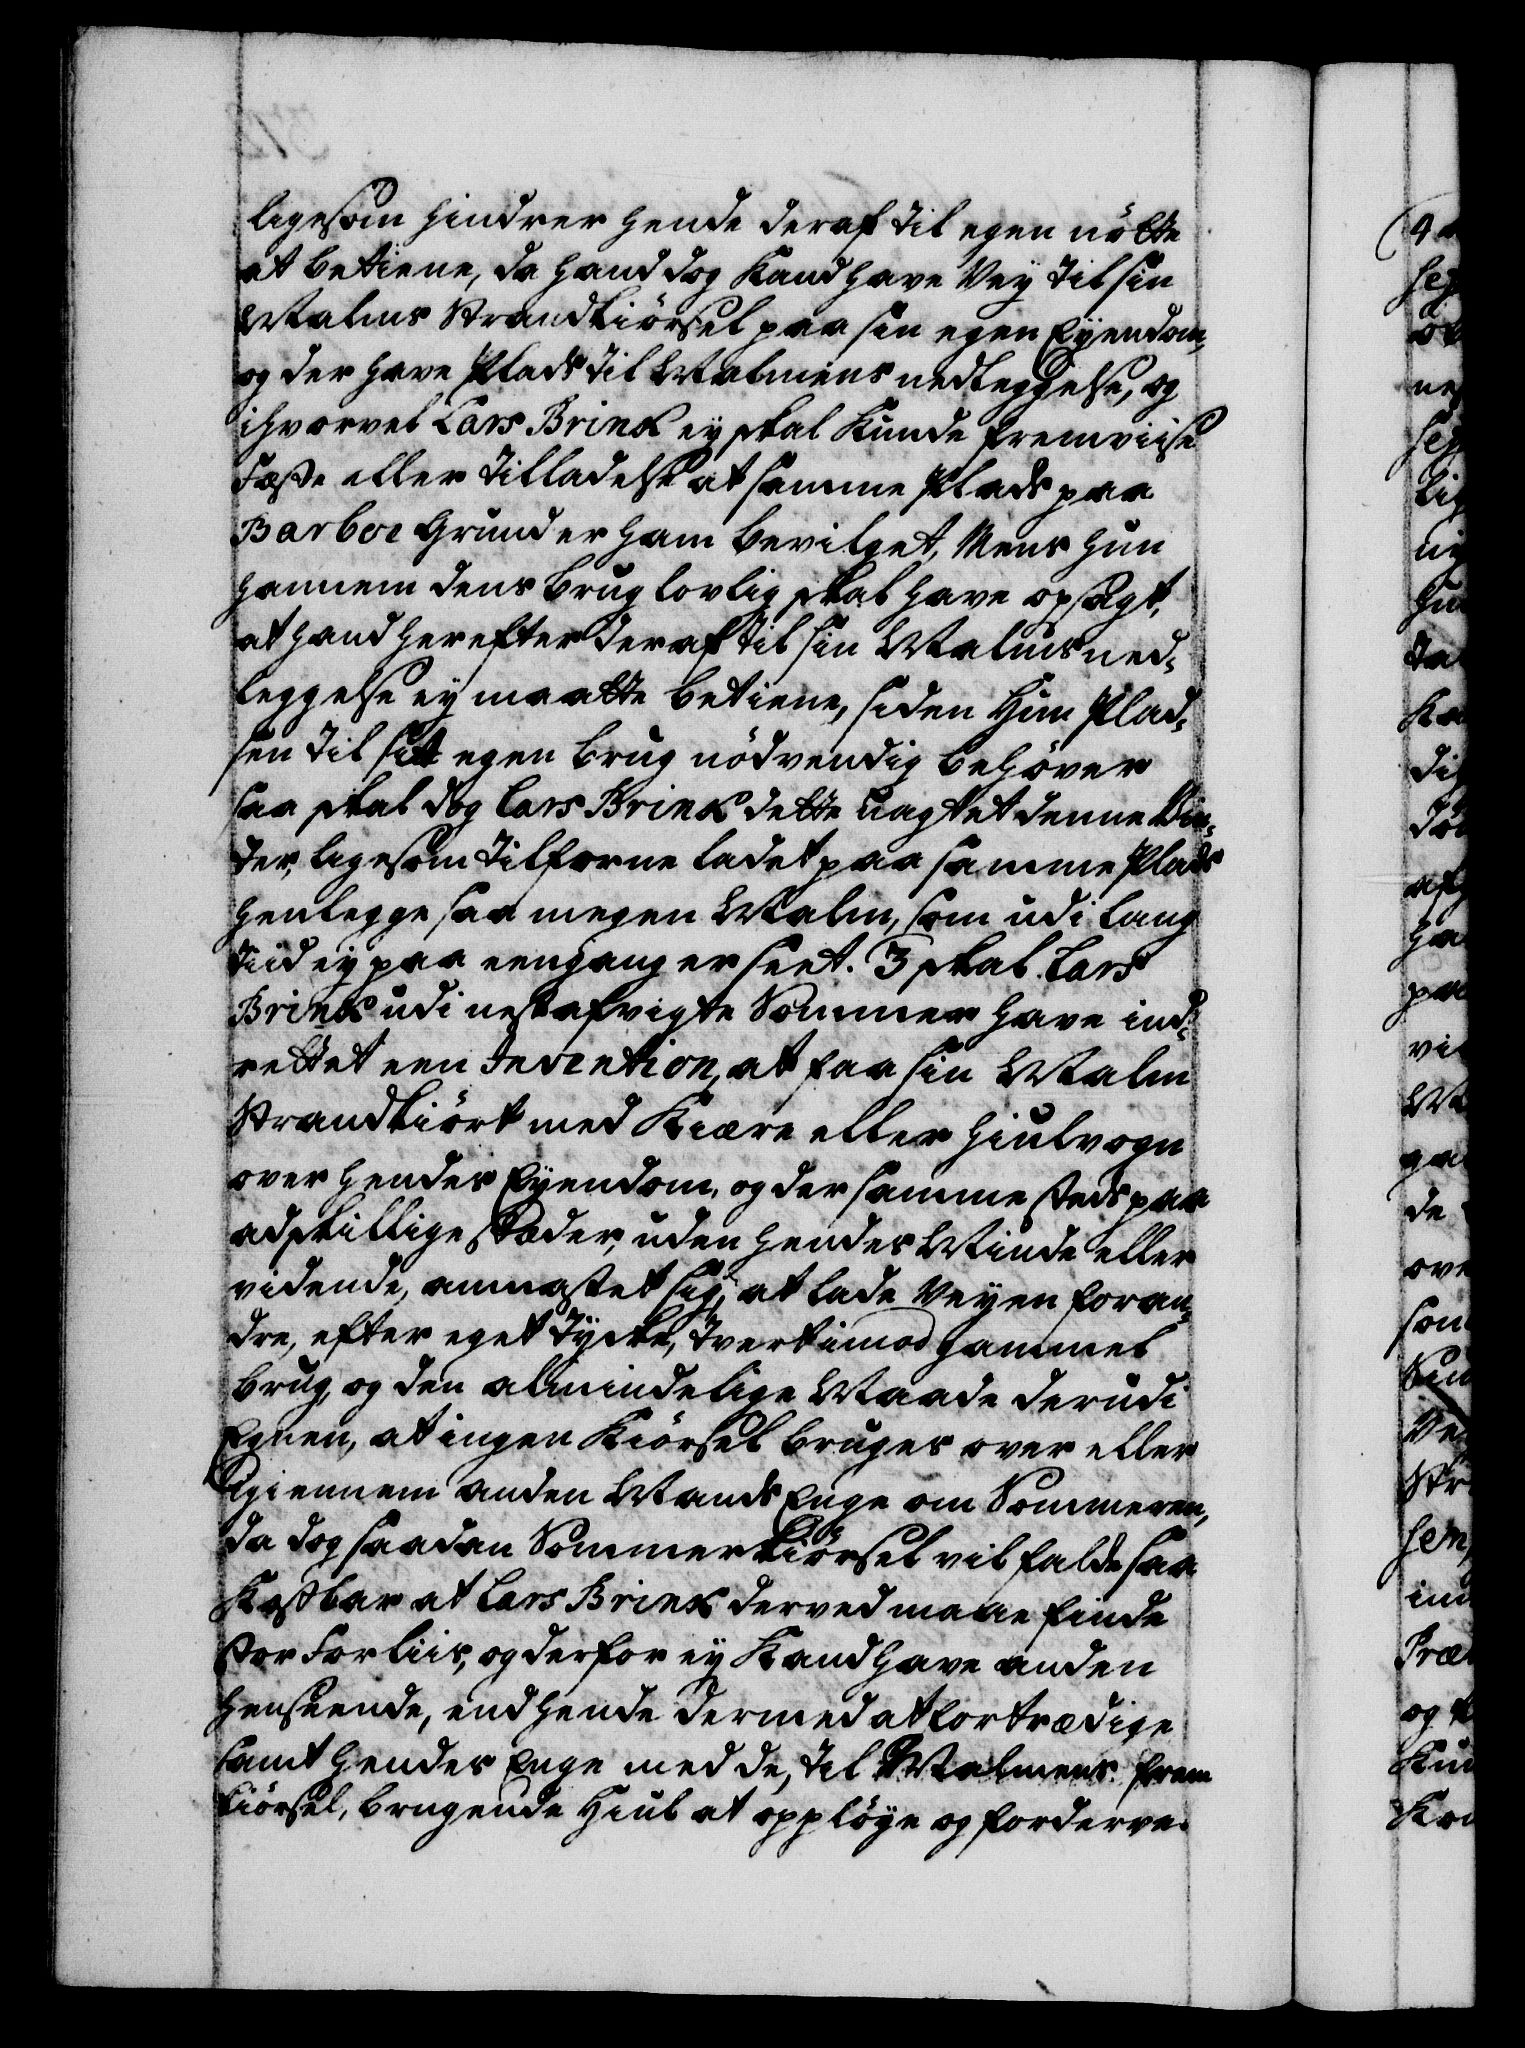 ligesom hindrer hende deraf til egen nötte
at betiene, da hand dog kand have Vey til sin
Malms Strandkiörsel paa sin egen Eyendom,
og der have Plads til Malmens nedleggelse, og
ihvorvel Lars Brinck ey skal kunde fremviise
Fæste eller tilladelse at samme Plads paa
Barboe Grund er ham bevilget, Mens hun
hannem dens brug lovlig skal have opsagt,
at hand herefter deraf til sin Malms ned-
leggelse ey maatte betiene, siden Hun Plad-
sen til sitt egen brug nödvendig behöver
saa skal dog Lars Brinck dette uagtet denne Vin-
ter, ligesom tilforne ladet paa samme Plads
henlegge saa megen Malm, som udi lang
tiid ey paa eengang er seet. 3 skal Lars
Brinck udi nestafvigte Sommer have ind-
rettet een Invention, at faa sin Malm
Strandkiört med Kiære eller hiulvogn
over hendes Eyendom, og der sammesteds paa
adskillige stæder, uden hendes Minde eller
vidende, anmastet sig, at lade Veyen foran-
dre, efter eget Tycke, tvertimod gammel
brug, og den almindelige Maade derudi
Egnen, at ingen Kiörsel bruges over eller
igiennem anden Mands Enge om Sommeren,
da dog saadan Sommerkiörsel vil falde saa
Kostbar at Lars Brinck derved maae finde
stor Forliis, og derfor ey Kand have anden
henseende, end hende dermed at fortrædige
samt hendes Enge med de, til Malmens frem
kiörsel, brugende Hiul at opplöye og forderve.